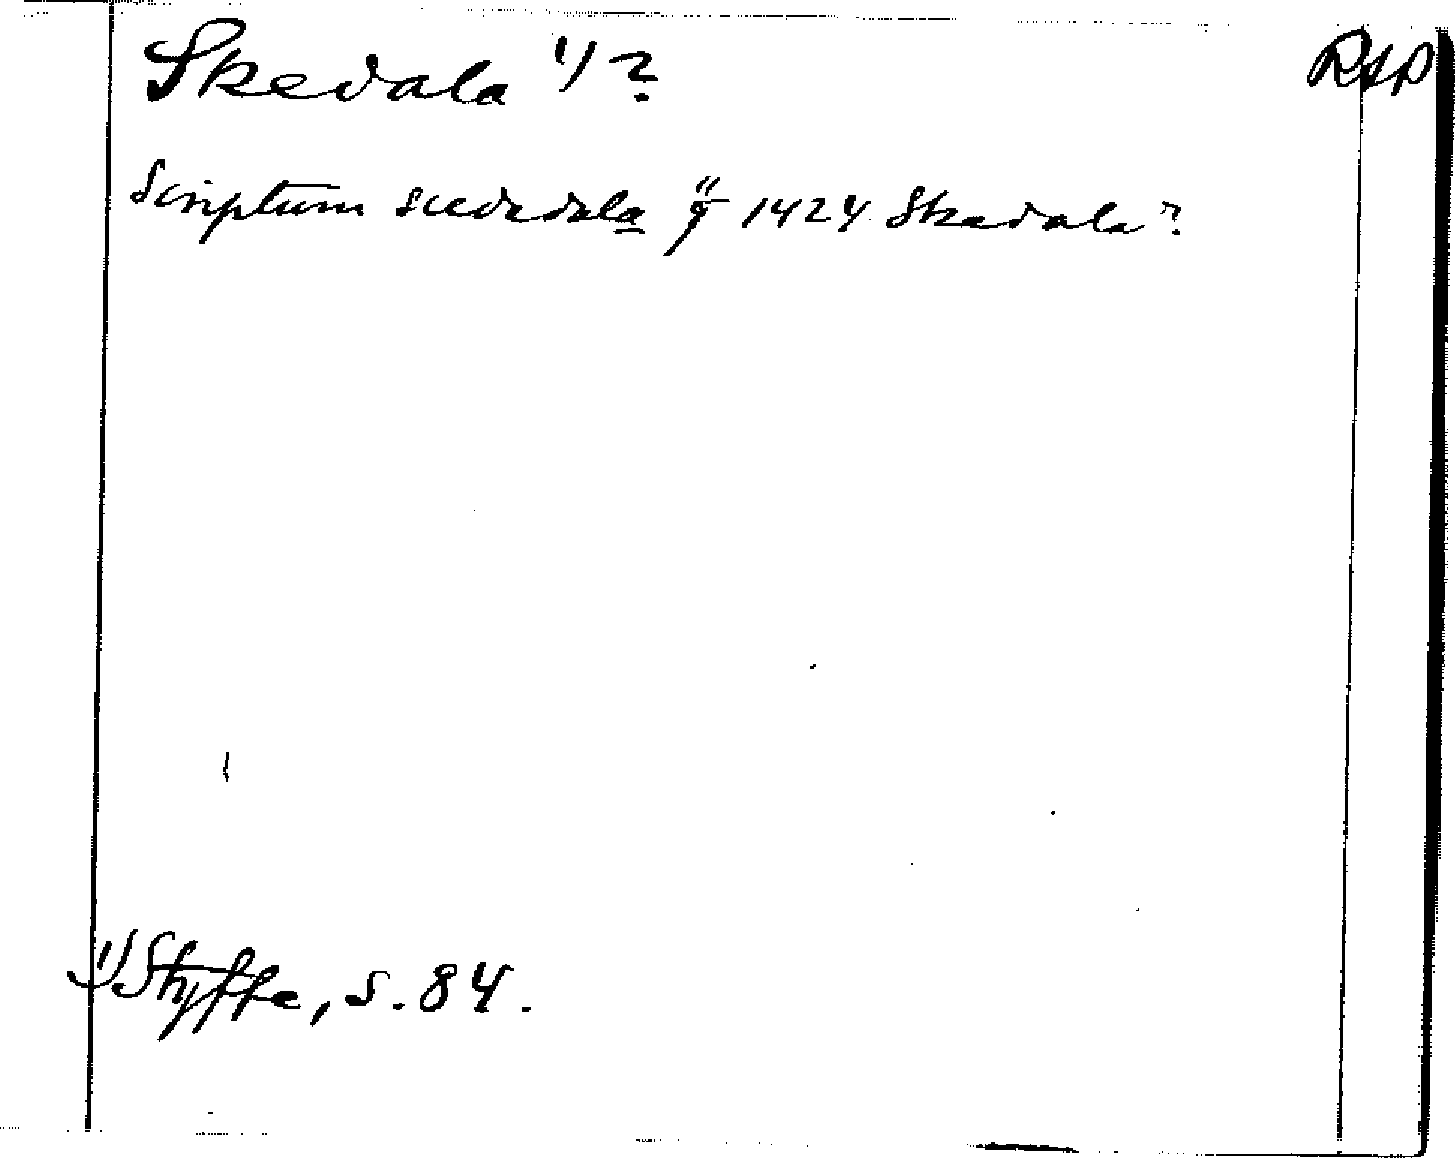 Skedala 1) ?
RAP
Scriptum scedhdala 11/9 1424 Skedala?
1) Styffe, s. 84.